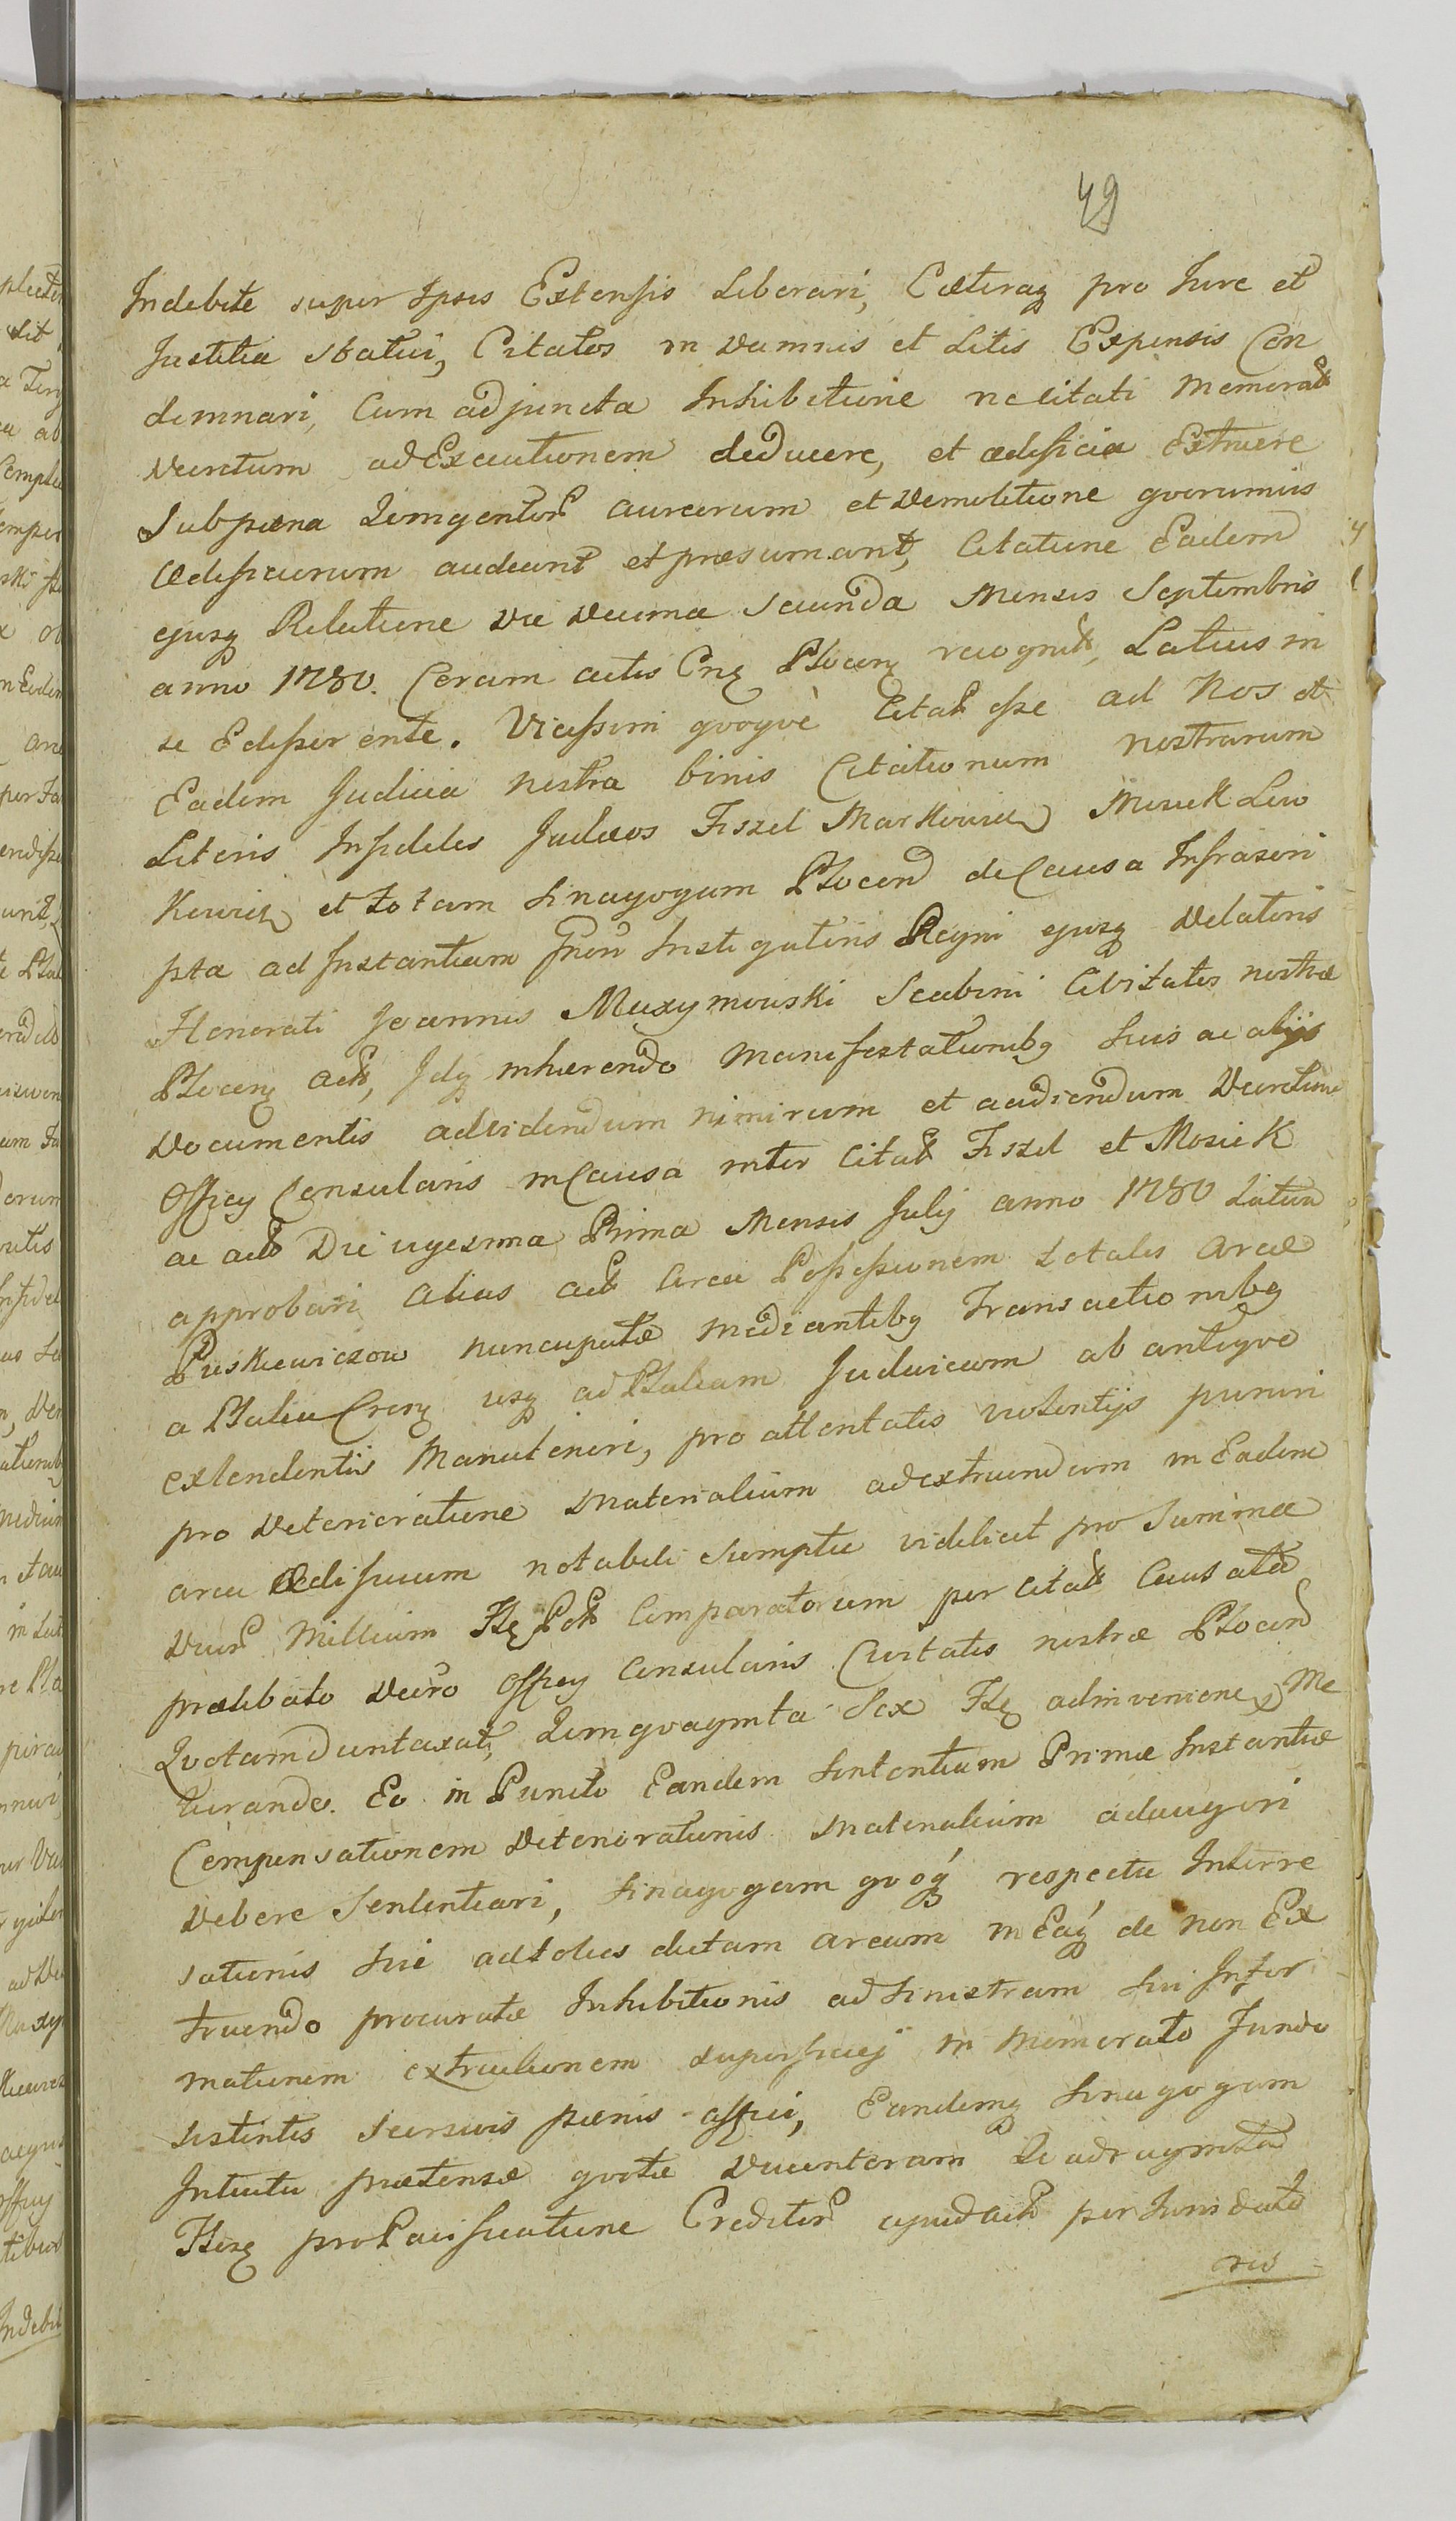 49
Indebite super Ipsis Extensis Liberari, Cæteraq pro Iure et
Iustitia statui, Citatos in Damnis et Litis Expensis Con
demnari, Cum adjuncta Inhibitione ne Citati Memorat
Decretum ad Executionem deducere, et ædificia Extruere
Sub pœna Quingentor aureorum et Demolitione quorumvis
Ædificiorum audeant et præsumant, Citatione Eadem
ejusq Relatione Die Decima Secunda Mensis Septembris
anno 1780. Coram actis Cng Plocen recognit, Latius in
se Edisserente. Vicissim quoquè Citat esse ad Nos et
Eadem Judicia nostra binis Citationum nostrarum
Literis Infideles Judæos Fiszel Markowicz Mosiek Lew
kowicz et totam Sinagogam Plocen de Causa Infrascri
pta ad Instantiam Instigatoris Regni ejusq Delatoris
Honorati Joannis Maxymowski Scabini Civitatis nostræ
Plocen act, Idq inhærendo Manifestationibq Suis ac alijs
Documentis ad videndum nimirum et audiendum Decretum
Officij Consularis in Causa inter Citat Fiszel et Mosiek
ac act Die vigesima Prima Mensis Julij anno 1780 Latum
approbari alias act circa Possessionem totalis areæ
Puskiewiczow nuncupatæ mediantibq Transactionibq
a Platea usq ad Plateam Judaicam ab antiquo
extendentis Manuteneri, pro attentatis violentijs puniri
pro Deterioratione Materialium ad extruendum in Eadem
area Ædificium notabili Sumptu videlicet pro Summa
Duor Millium Flg Pol Comparatorum per Citat Causata
prælibato Decro Officij Consularis Civitatis nostræ Plocen
Quotam duntaxat, Quinquaginta Sex Flg adinveniene Me
liorando. Eo in Puncto Eandem Sententiam Primæ Instantiæ
Compensationem Deteriorationis Materialium adaugeri
Debere Sententiari, Sinagogam quoq respectu Inferre
sationis Sui ad toties dictam aream in Eaq de non Ex
truendo procuratæ Inhibitionis ad Sinistram Sui Infor
mationem extructionem superficiej in Memorato Fundo
sistentis seorsivis pœnis affici, Eandemq Sinagogam
Intuitu prætensæ quotæ Ducentorum Quadraginta
Flg pro Pacificatione Creditor apud act per Juris dato
ris